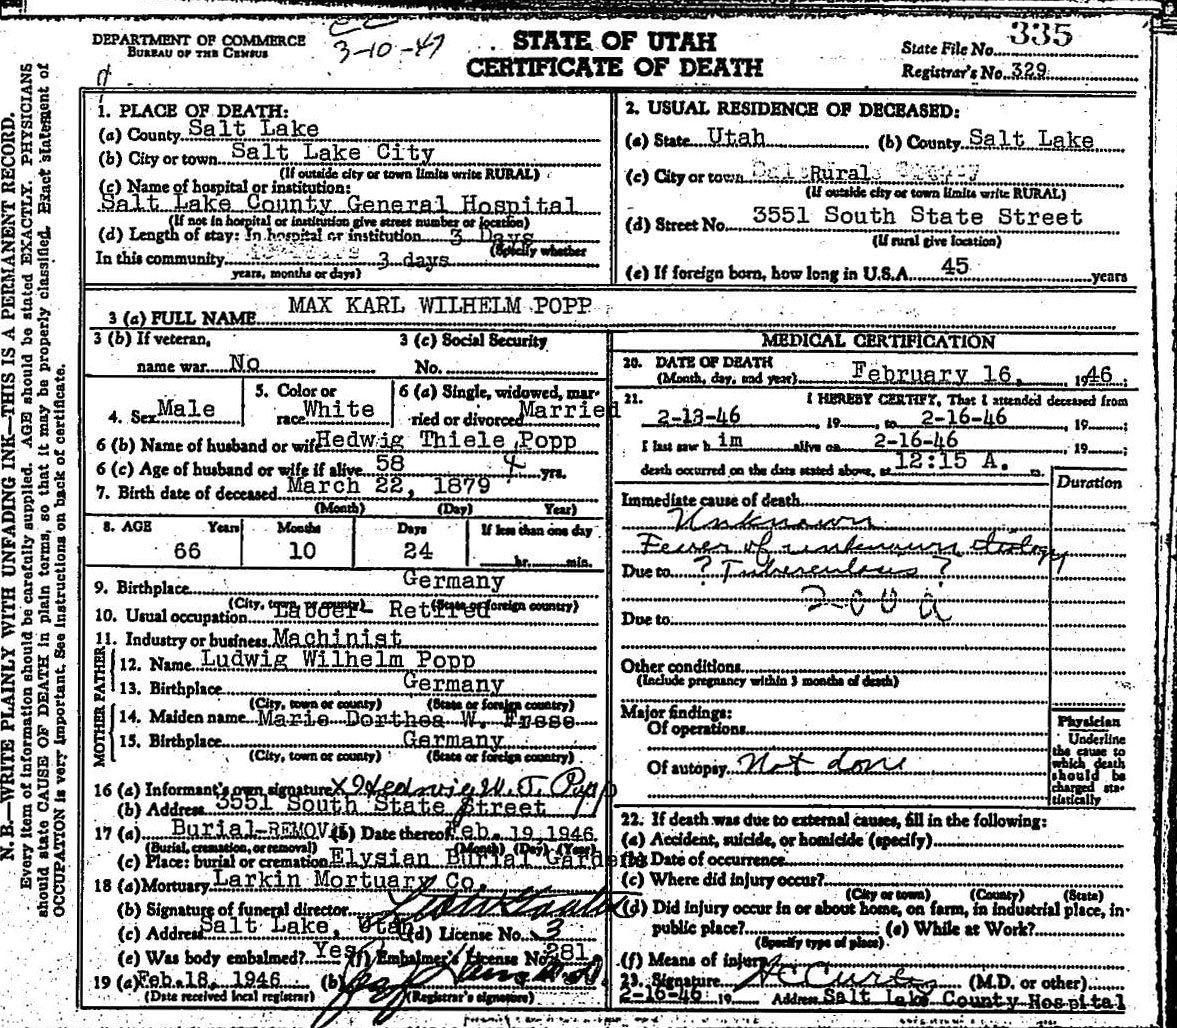 DEPARTMENT OF COMMERCE
BUREAU OF THE CENSUS
3-10-47
STATE OF UTAH
CERTIFICATE OF DEATH
State File No. 335
Registrar's No. 329
N. B.—WRITE PLAINLY WITH UNFADING INK—THIS IS A PERMANENT RECORD.
Every item of information should be carefully supplied. AGE should be stated EXACTLY. PHYSICIANS
should state CAUSE OF DEATH in plain terms, so that it may be properly classified. Exact statement of
OCCUPATION is very important. See instructions on back of certificate.
1. PLACE OF DEATH:
(a) County Salt Lake
(b) City or town Salt Lake City
(If outside city or town limits write RURAL)
(c) Name of hospital or institution:
Salt Lake County General Hospital
(If not in hospital or institution give street number or location)
(d) Length of stay: In hospital or institution 3 Days
(Specify whether
In this community 3 days
years, months or days)
2. USUAL RESIDENCE OF DECEASED:
(a) State Utah (b) County Salt Lake
(c) City or town Rural
(If outside city or town limits write RURAL)
(d) Street No. 3551 South State Street
(If rural give location)
(e) If foreign born, how long in U.S.A. 45 years
3 (a) FULL NAME MAX KARL WILHELM POPP
3 (b) If veteran,
name war No
3 (c) Social Security
No.
4. Sex Male
5. Color or
race White
6 (a) Single, widowed, mar-
ried or divorced Married
6 (b) Name of husband or wife Hedwig Thiele Popp
6 (c) Age of husband or wife if alive 58 yrs.
7. Birth date of deceased March 22, 1879
(Month) (Day) Year)
8. AGE Years Months Days If less than one day
66 10 24 hr. min.
9. Birthplace Germany
(City, town or county) (State or foreign country)
10. Usual occupation Labder- Retired
11. Industry or business Machinist
FATHER
12. Name Ludwig Wilhelm Popp
13. Birthplace Germany
(City, town or county) (State or foreign country)
MOTHER
14. Maiden name Marie Dorthea W. Frese
15. Birthplace Germany
(City, town or county) (State or foreign country)
16 (a) Informant's own signature x Hedwig W. T. Popp
(b) Address 3551 South State Street
17 (a) Burial-REMOVAL (b) Date thereof Feb. 19, 1946
(Burial, cremation, or removal) (Month) (Day) (Year)
(c) Place: burial or cremation Elysian Burial Gardens
18 (a) Mortuary Larkin Mortuary Co.
(b) Signature of funeral director
(c) Address Salt Lake, Utah (d) License No. 3
(e) Was body embalmed? Yes (f) Embalmer's License No. 281
19 (a) Feb. 18, 1946 (b)
(Date received local registrar) (Registrar's signature)
MEDICAL CERTIFICATION
20. DATE OF DEATH
(Month, day, and year) February 16, 1946;
21. I HEREBY CERTIFY, That I attended deceased from
2-13-46, 19 , to 2-16-46, 19 ;
I last saw h im alive on 2-16-46, 19 ;
death occurred on the date stated above, at 12:15 A. m.
Duration
Immediate cause of death
Unknown
Fever of unknown etiology
Due to ? Tuberculous ?
Due to
Other conditions
(Include pregnancy within 3 months of death)
Major findings:
Of operations
Of autopsy Not done
Physician
Underline
the cause to
which death
should be
charged sta-
tistically
22. If death was due to external causes, fill in the following:
(a) Accident, suicide, or homicide (specify)
(b) Date of occurrence
(c) Where did injury occur?
(City or town) (County) (State)
(d) Did injury occur in or about home, on farm, in industrial place, in
public place? (e) While at Work?
(Specify type of place)
(f) Means of injury
23. Signature H C Curtis (M.D. or other)
2-16-46 19 Address Salt Lake County Hospital